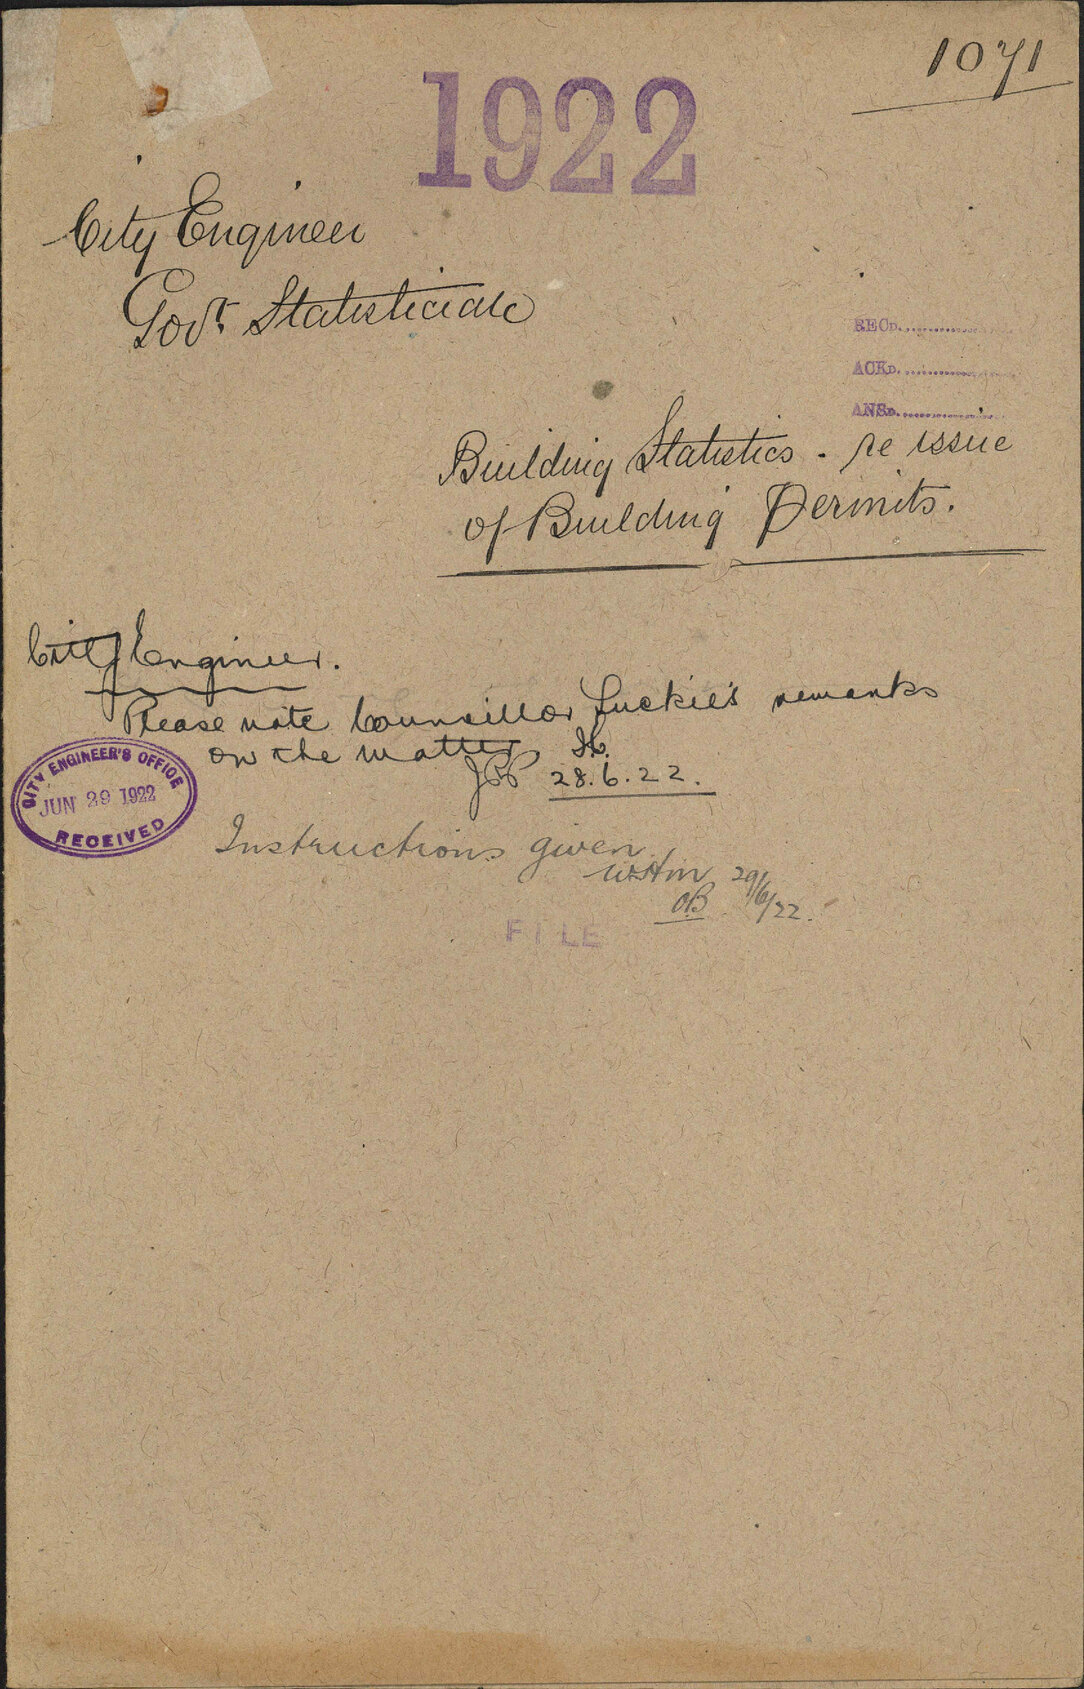 1071
1922
City Engineer
Govt Statistician
RECD.
ACKD.
ANSD.
Building Statistics - re issue
of Building Permits.
City Engineer.
Please note Councillor Luckie's remarks
on the matter
28.6.22.
CITY ENGINEER'S OFFICE
JUN 29 1922
RECEIVED
Instructions given
29/6/22.
OB
FILE